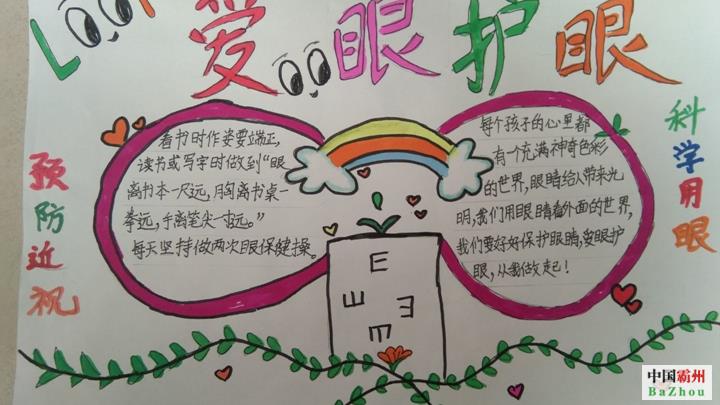 Look
爱眼护眼
预防近视
看书时作姿要端正,
读书或写字时做到“眼
离书本一尺远,胸离书桌一
拳远,手离笔尖一寸远。”
每天坚持做两次眼保健操。
每个孩子的心里都
有一个充满神奇色彩
的世界,眼睛给人带来光
明,我们用眼睛看外面的世界,
我们要好好保护眼睛,爱眼护
眼,从我做起!
科学用眼
E
Ш
Ǝ
E
中国霸州
BaZhou